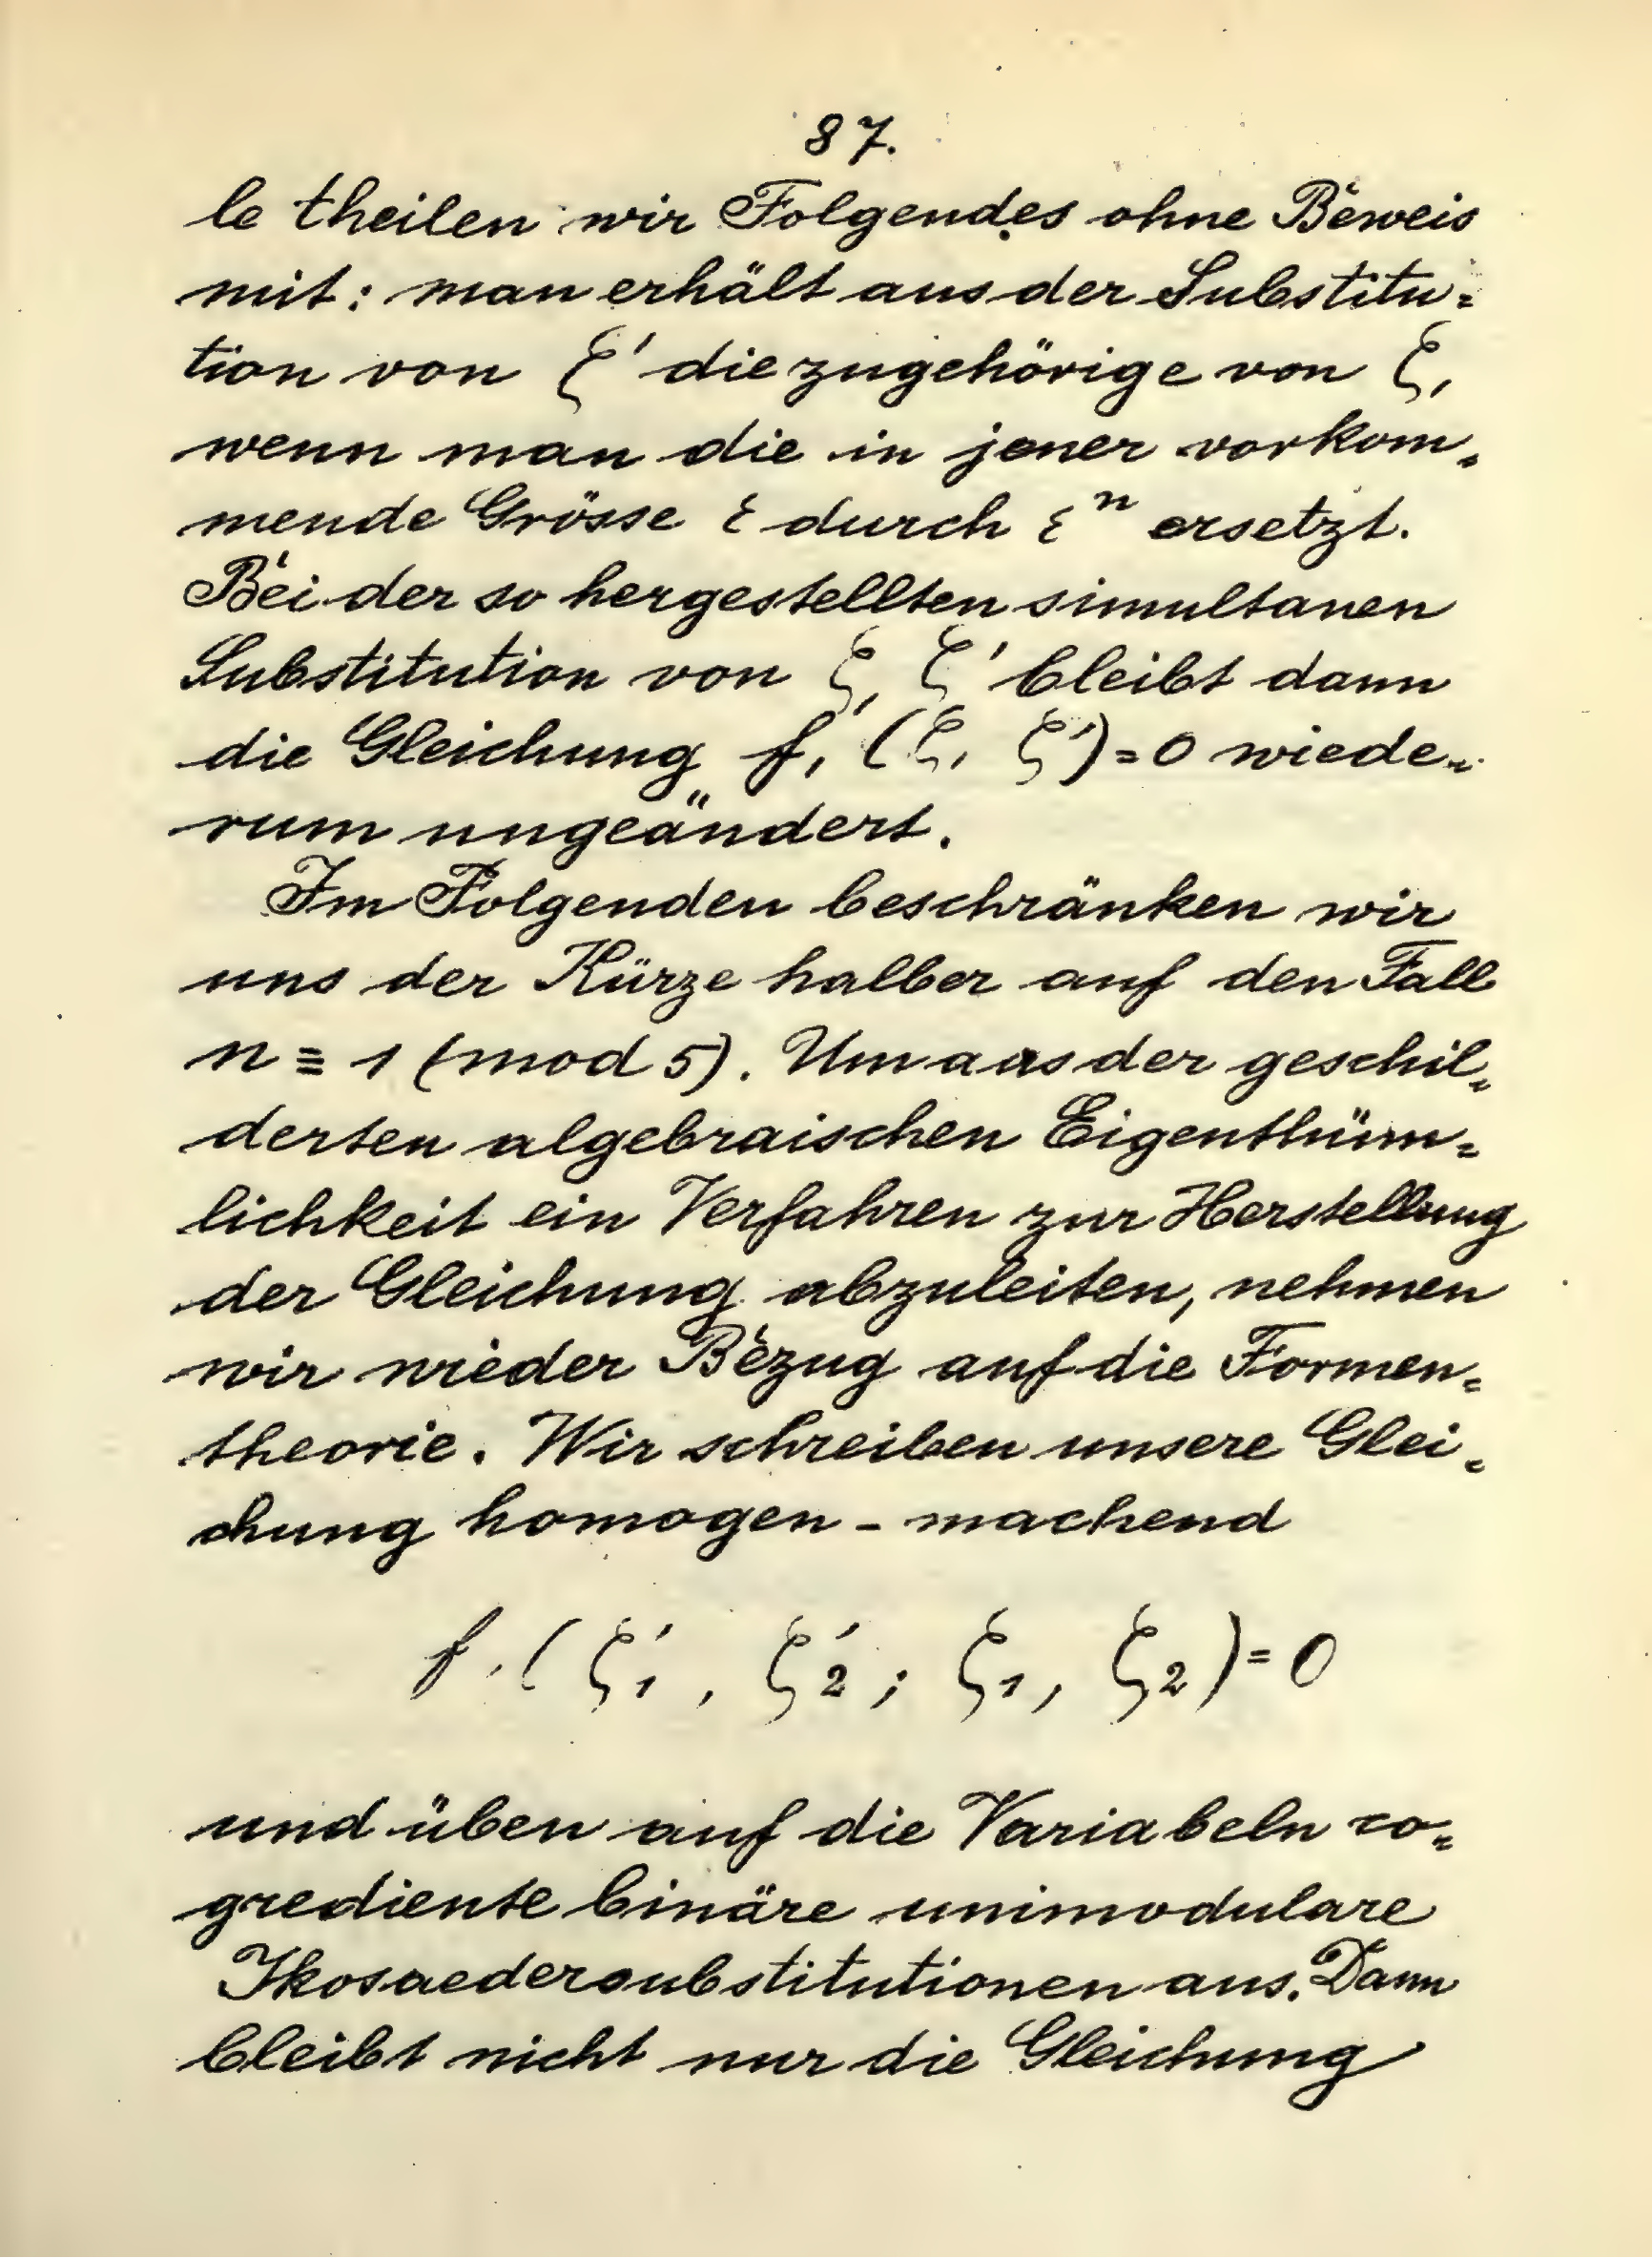 87.
le theilen wir Folgendes ohne Beweis
mit: man erhält aus der Substitu=
tion von ζ' die zugehörige von ζ,
wenn man die in jener vorkom=
mende Grösse ε durch εⁿ ersetzt.
Bei der so hergestellten simultanen
Substitution von ζ, ζ' bleibt dann
die Gleichung f, (ζ, ζ')=0 wiede=
rum ungeändert.
Im Folgenden beschränken wir
uns der Kürze halber auf den Fall
n ≡ 1 (mod 5). Um aus der geschil=
derten algebraischen Eigenthüm=
lichkeit ein Verfahren zur Herstellung
der Gleichung abzuleiten, nehmen
wir wieder Bezug auf die Formen=
theorie. Wir schreiben unsere Glei=
chung homogen - machend
f, (ζ₁', ζ₂'; ζ₁, ζ₂)=0
und üben auf die Variabeln co=
grediente binäre unimodulare
Ikosaedersubstitutionen aus. Dann
bleibt nicht nur die Gleichung